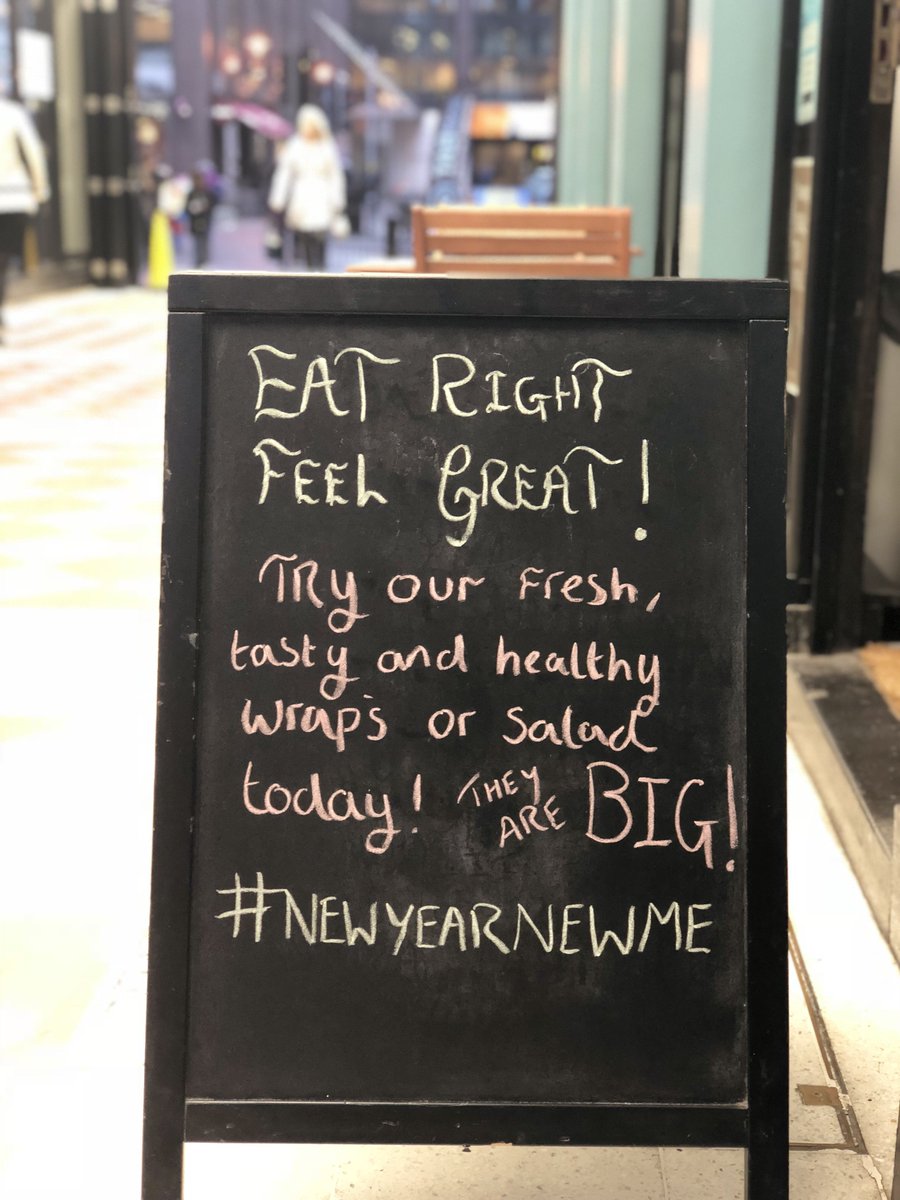 EAT RIGHT
FEEL GREAT!
Try our Fresh,
tasty and healthy
wrap's or Salad
today! THEY ARE BIG!
#NEWYEARNEWME